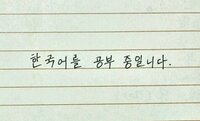 한국어를 공부 중입니다.